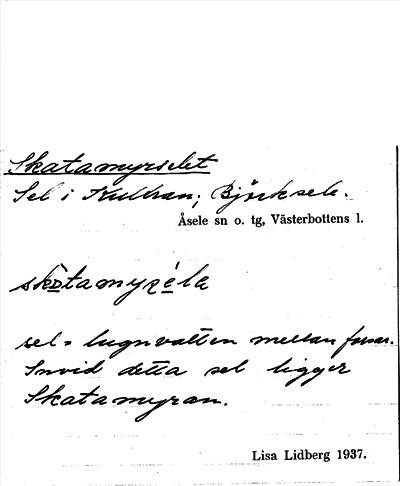 Skatamyrselet
Sel i Kullran; Björksele.
Åsele sn o. tg, Västerbottens l.
sel = lugnvatten mellan forsar.
Invid detta sel ligger
Skatamyran.
Lisa Lidberg 1937.